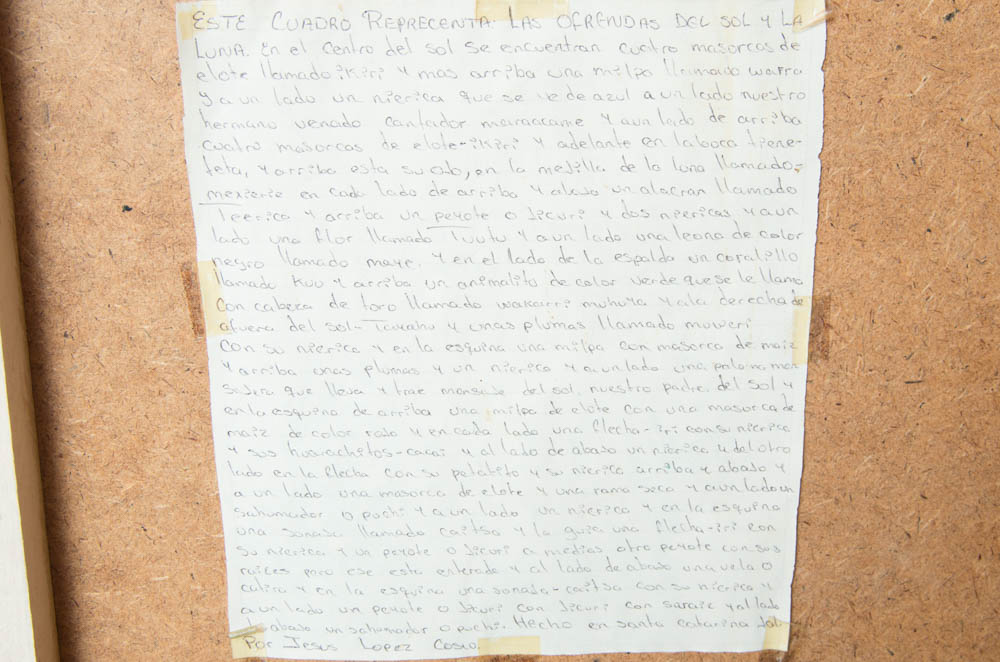 ESTE CUADRO REPRECENTA: LAS OFRENDAS DEL SOL Y LA
LUNA. En el centro del sol se encuentran cuatro masorcas de
elote llamado iKiri Y mas arriba una milpa llamado waxra
y a un lado un nierica que se ve de azul a un lado nuestro
hermano venado cantador maraacame Y a un lado de arriba
cuatro masorcas de elote-iKiri Y adelante en la boca tiene-
teta, Y arriba esta su ojo, en la mejilla de la luna llamado=
mexierie en cada lado de arriba Y abajo un alacran llamado
Teerica Y arriba un peyote o Jicuri Y dos niericas, Y a un
lado una flor llamado Tuutu Y a un lado una leona de color
negro llamado maye. Y en el lado de la espalda un coralillo
llamado Kuu Y arriba un animalito de color verde que se le llama
Con cabeza de toro llamado wakarri Y a la derecha de
afuera del sol- Y unas plumas llamado muweri
con su nierica Y en la esquina una milpa con masorca de maiz
Y arriba unas plumas Y un nierica Y a un lado una paloma men
sajera que lleva Y trae mensaje del sol. nuestro padre del sol Y
en la esquina de arriba una milpa de elote con una masorca de
maiz de color rojo Y en cada lado una flecha-iri con su nierica
Y sus huarachitos-cacai Y al lado de abajo un nierica Y del otro
lado en la flecha con su palchito Y su nierica arriba Y abajo Y
a un lado una masorca de elote Y una rama seca Y a un lado un
sahumador o puchi Y a un lado un nierica Y en la esquina
una sonaja llamado caitsa Y la guia una flecha-iri con
su nierica Y un peyote o Jicuri a medias otro peyote con sus
raices pero ese esta enterado Y al lado de abajo una vela o
catira Y en la esquina una sonada-caitsa con su nierica Y
a un lado un peyote o Jicuri con Jicuri con Y al lado
de abajo un sahumador o puchi. Hecho en santa catarina Jal.
Por Jesus Lopez Cosio.